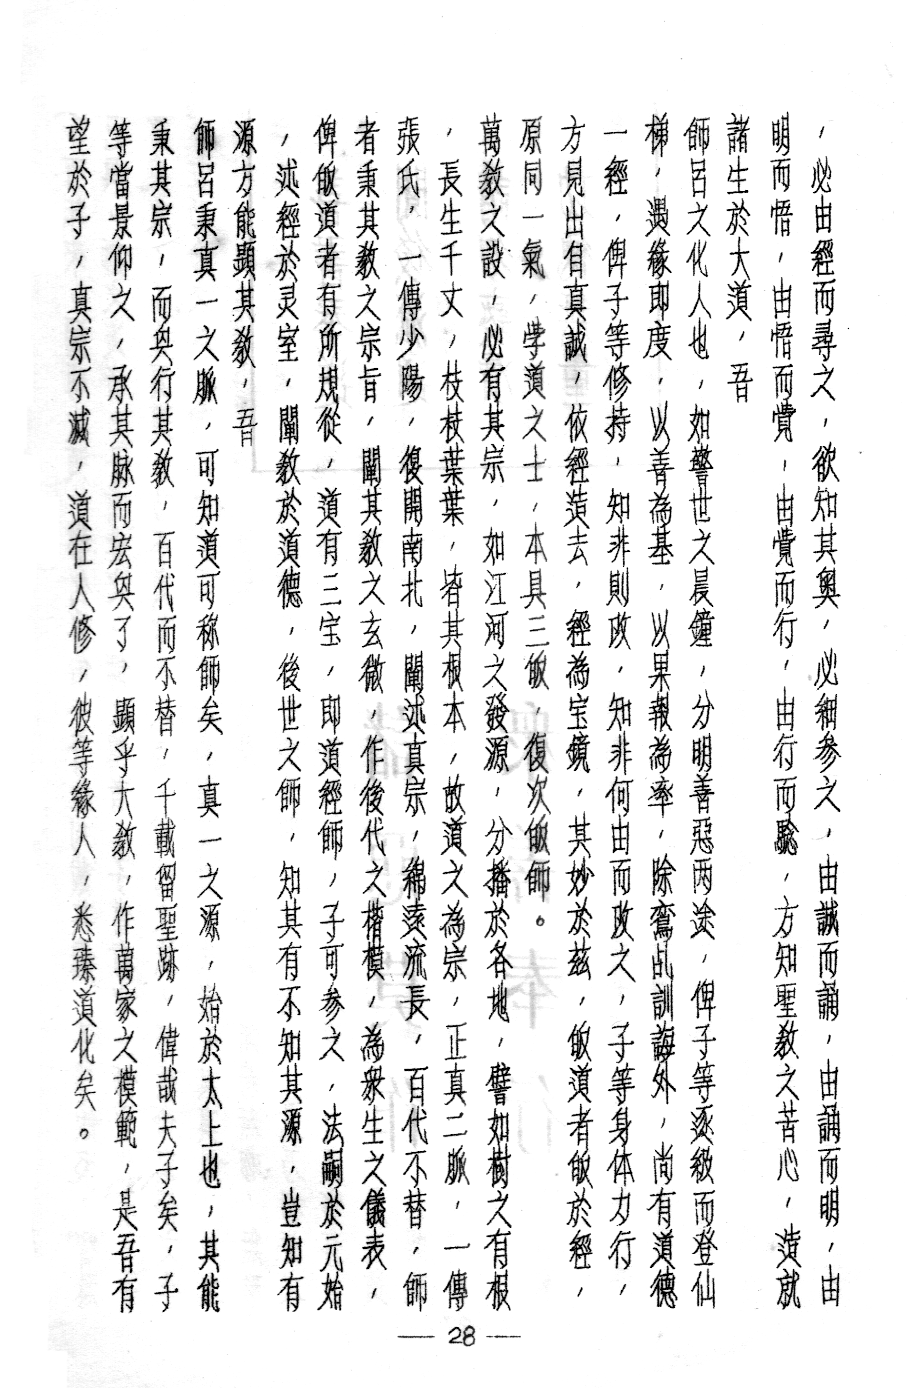 ，必由經而尋之，欲知其奧，必細參之，由誠而誦，由誦而明，由
明而悟，由悟而覺，由覺而行，由行而驗，方知聖教之苦心，造就
諸生於大道，吾
師呂之化人也，如警世之晨鐘，分明善惡两途，俾子等逐級而登仙
梯，遇緣即度，以善為基，以果報為率，除鸞乩訓誨外，尚有道德
一經，俾子等修持，知非則改，知非何由而改之，子等身体力行，
方見出自真誠，依經造去，經為宝鏡，其妙於茲，皈道者皈於經，
原同一氣，学道之士，本具三皈，復次皈師。
萬教之設，必有其宗，如江河之發源，分播於各地，譬如樹之有根
，長生千丈，枝枝葉葉，皆其根本，故道之為宗，正真二脈，一傳
張氏，一傳少陽，復開南北，闡述真宗，綿遠流長，百代不替，師
者秉其教之宗旨，闡其教之玄微，作後代之楷模，為衆生之儀表，
俾皈道者有所規從，道有三宝，即道經師，子可參之，法嗣於元始
，述經於灵室，闡教於道德，後世之師，知其有不知其源，豈知有
源方能顯其教，吾
師呂秉真一之脈，可知道可称師矣，真一之源，始於太上也，其能
秉其宗，而兴行其教，百代而不替，千載留聖跡，偉哉夫子矣，子
等當景仰之，承其脈而宏兴了，顯乎大教，作萬家之模範，是吾有
望於子，真宗不滅，道在人修，彼等緣人，悉臻道化矣。
— 28 —